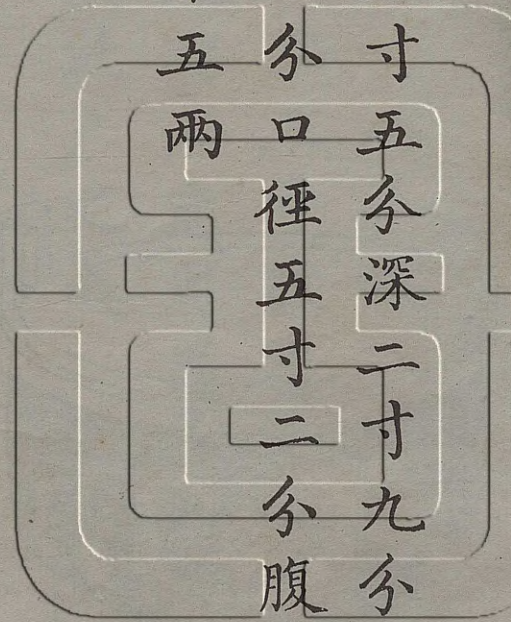 寸五分深二寸九分
分口徑五寸二分腹
五兩